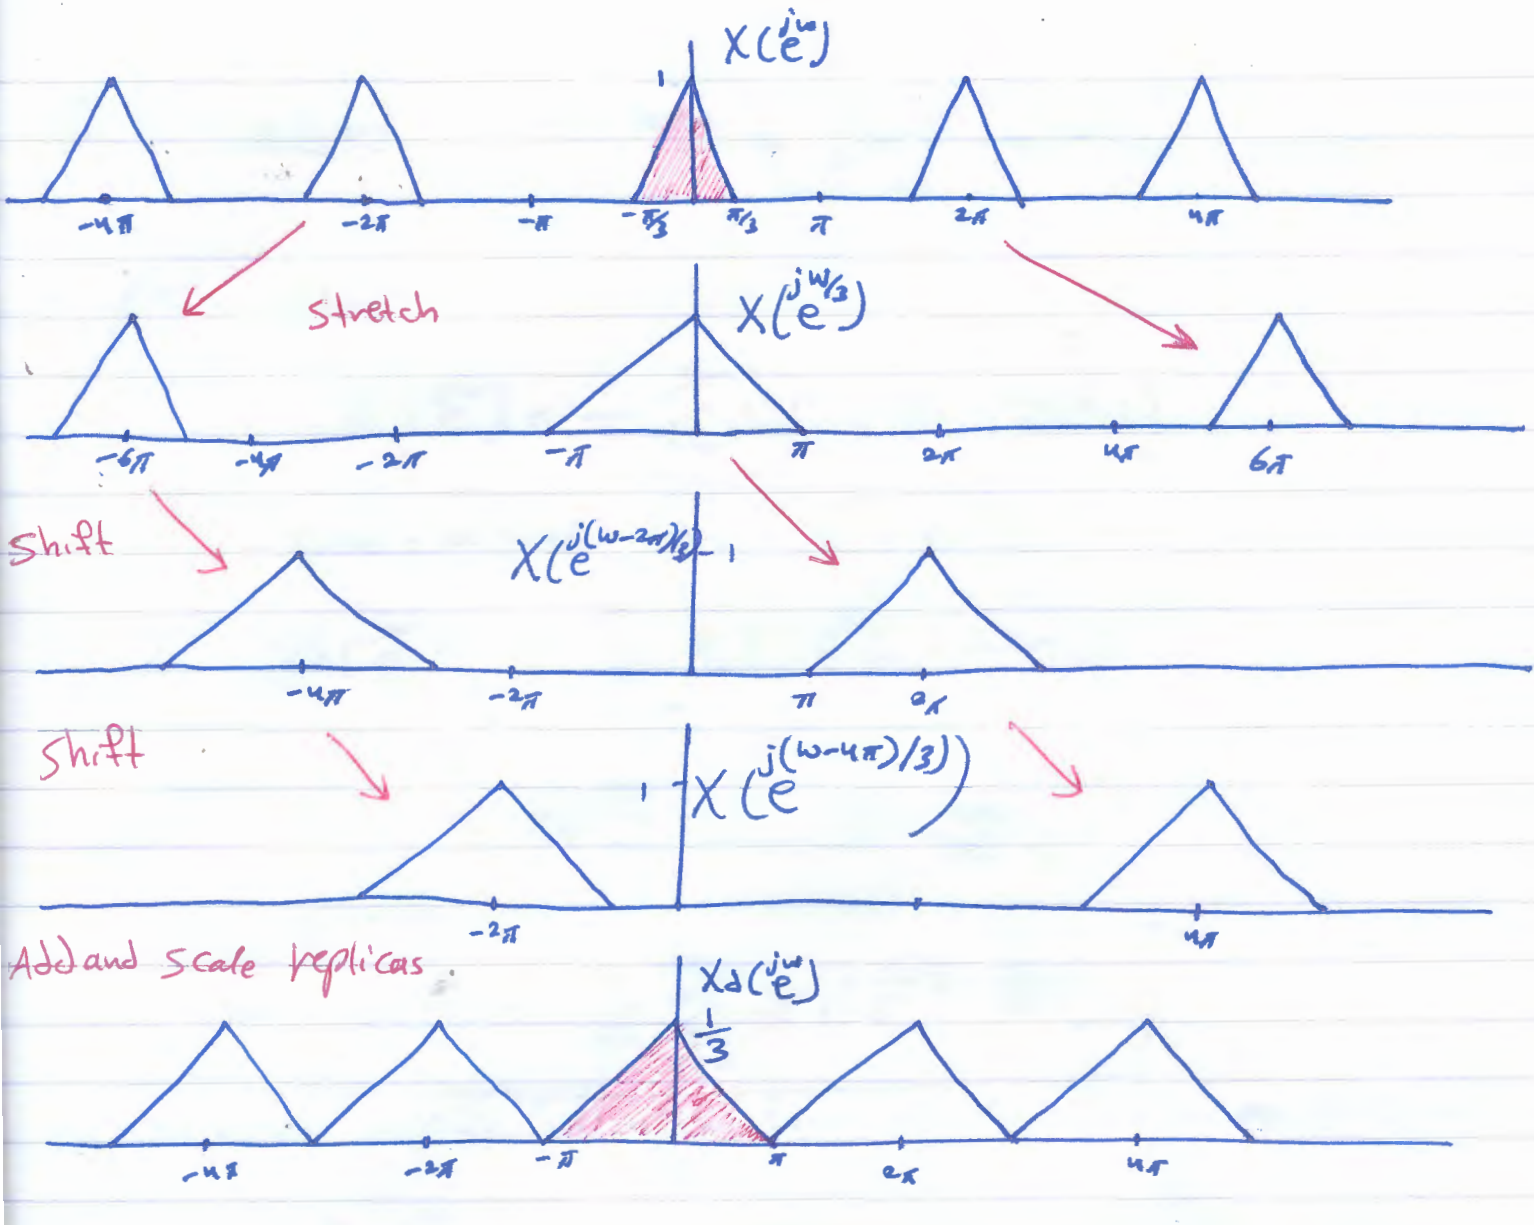 X(e^{jω})
1
-4π -2π -π -π/3 π/3 π 2π 4π
Stretch X(e^{jω/3})
-6π -4π -2π -π π 2π 4π 6π
Shift X(e^{j(ω-2π)/3}) 1
-4π -2π π 2π
Shift 1 X(e^{j(ω-4π)/3})
-2π 4π
Add and scale replicas Xd(e^{jω})
1/3
-4π -2π -π π 2π 4π